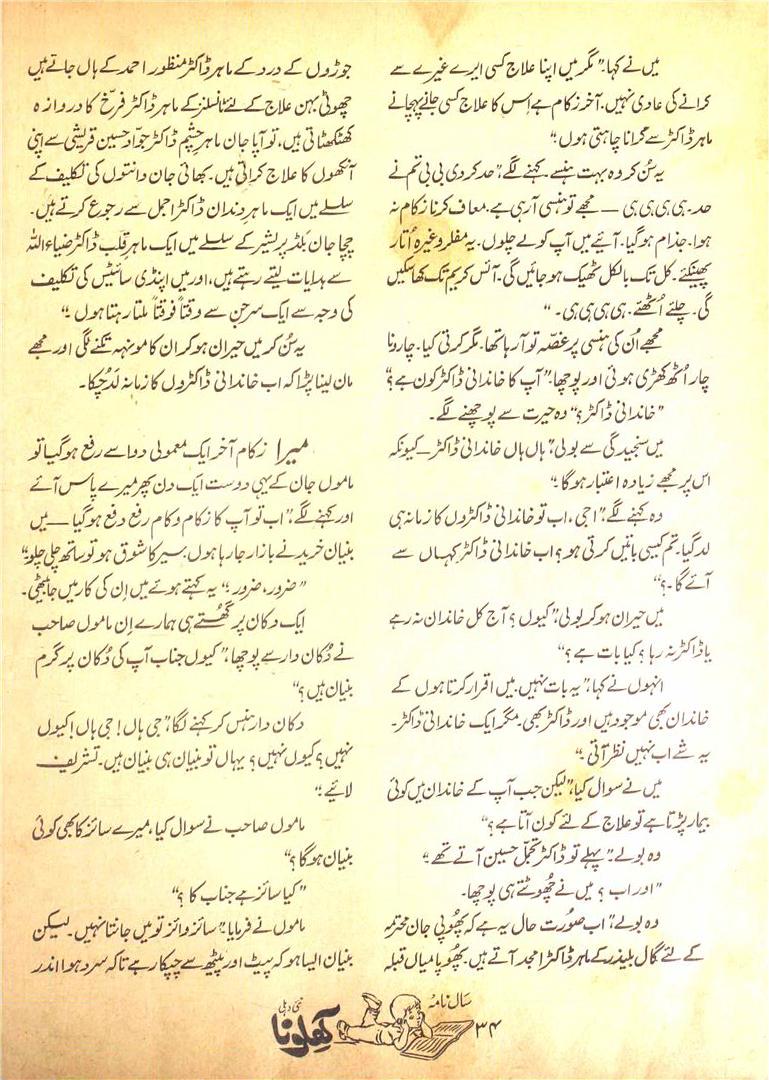 میں نے کہا۔” مگر میں اپنا علاج کسی ایرے غیرے سے
کرانے کی عادی نہیں۔ آخر زکام ہے اِس کا علاج کسی جانے پہچانے
ماہر ڈاکٹر سے کرانا چاہتی ہوں ؛“
یہ سُن کر وہ بہت ہنسے۔ کہنے لگے،”حد کر دی بی بی تم نے
حد۔ ہی ہی ہی ہی — مجھے تو ہنسی آ رہی ہے۔ معاف کرنا زکام نہ
ہوا۔ جذام ہو گیا۔ آئیے میں آپ کو لے چلوں۔ یہ مفلر وغیرہ اُتار
پھینکئے۔ کل تک بالکل ٹھیک ہو جائیں گی۔ آئس کریم تک کھا سکیں
گی۔ چلئے اُٹھئے۔ ہی ہی ہی ہی۔ “
مجھے اُن کی ہنسی پر غصّہ تو آ رہا تھا۔ مگر کرتی کیا۔ چار و نا
چار اُٹھ کھڑی ہوئی اور پوچھا۔”آپ کا خاندانی ڈاکٹر کون ہے؟“
”خاندانی ڈاکٹر؟“ وہ حیرت سے پوچھنے لگے۔
میں سنجیدگی سے بولی،”ہاں ہاں خاندانی ڈاکٹر — کیونکہ
اس پر مجھے زیادہ اعتبار ہوگا ؛“
وہ کہنے لگے،”اجی، اب تو خاندانی ڈاکٹروں کا زمانہ ہی
لد گیا۔ تم کیسی باتیں کرتی ہو؟ اب خاندانی ڈاکٹر کہاں سے
آئے گا۔؟“
میں حیران ہو کر بولی،”کیوں ؟ آج کل خاندان نہ رہے
یا ڈاکٹر نہ رہا ؟ کیا بات ہے ؟“
انہوں نے کہا،”یہ بات نہیں۔ میں اقرار کرتا ہوں کے
خاندان بھی موجود ہیں اور ڈاکٹر بھی۔ مگر ایک خاندانی ڈاکٹر۔
یہ شے اب نہیں نظر آتی ؛“
میں نے سوال کیا،”لیکن جب آپ کے خاندان میں کوئی
بیمار پڑتا ہے تو علاج کے لئے کون آتا ہے ؟“
وہ بولے۔”پہلے تو ڈاکٹر تجمّل حسین آتے تھے ؛“
”اور اب ؟ میں نے چھُوٹتے ہی پوچھا۔
وہ بولے،”اب صُورت حال یہ ہے کہ پھُوپی جان محترمہ
کے لئے گال بلیڈر کے ماہر ڈاکٹر امجد آتے ہیں۔ پھُوپا میاں قبلہ
جوڑوں کے درد کے ماہر ڈاکٹر منظور احمد کے ہاں جاتے ہیں
چھوٹی بہن علاج کے لئے ٹانسلز کے ماہر ڈاکٹر فرّخ کا دروازہ
کھٹکھٹاتی ہیں، تو آپا جان ماہرِ چشم ڈاکٹر جواد حسین قریشی سے اپنی
آنکھوں کا علاج کراتی ہیں۔ بھائی جان دانتوں کی تکلیف کے
سلسلے میں ایک ماہرِ دندان ڈاکٹر اجمل سے رجوع کرتے ہیں۔
چچا جان بلڈ پریشیر کے سلسلے میں ایک ماہرِ قلب ڈاکٹر ضیاء اللہ
سے ہدایات لیتے رہتے ہیں، اور میں اپنڈی سائیٹس کی تکلیف
کی وجہ سے ایک سرجن سے وقتاً فوقتاً ملتا رہتا ہوں ؛“
یہ سُن کر میں حیران ہو کر ان کا مونہہ تکنے لگی اور مجھے
مان لینا پڑا کہ اب خاندانی ڈاکٹروں کا زمانہ لَد چُکا۔
میرا زکام آخر ایک معمولی دوا سے رفع ہو گیا تو
ماموں جان کے یہی دوست ایک دن پھر میرے پاس آئے
اور کہنے لگے،”اب تو آپ کا زکام وکام رفع دفع ہو گیا — میں
بنیان خریدنے بازار جا رہا ہوں۔ سیر کا شوق ہو تو ساتھ چلی چلو“
”ضرور، ضرور ؛“ یہ کہتے ہوئے میں اِن کی کار میں جا بیٹھی۔
ایک دکان پر گھُستے ہی ہمارے اِن ماموں صاحب
نے دُکان دار سے پوچھا،”کیوں جناب آپ کی دُکان پر گرم
بنیان ہیں ؟“
دکان دار ہنس کر کہنے لگا،”جی ہاں ! جی ہاں ! کیوں
نہیں؟ کیوں نہیں؟ یہاں تو بنیان ہی بنیان ہیں۔ تشریف
لائیے ؛“
ماموں صاحب نے سوال کیا، میرے سائز کا بھی کوئی
بنیان ہوگا ؟“
”کیا سائز ہے جناب کا ؟“
ماموں نے فرمایا،”سائز وائز تو میں جانتا نہیں۔ لیکن
بنیان ایسا ہو کہ پیٹ اور پیٹھ سے چپکا رہے تاکہ سرد ہوا اندر
سال نامہ
۳۴
کھلونا
نئی دہلی